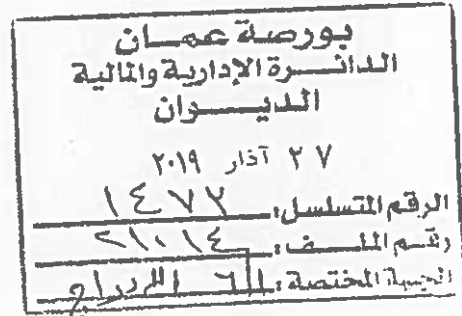 بورصة عمان
الدائرة الإدارية والمالية
الديوان
٢٧ آذار ٢٠١٩
الرقم المتسلسل: ١٤٧٢
رقم الملف: ٢١٠١٤
الجهة المختصة: